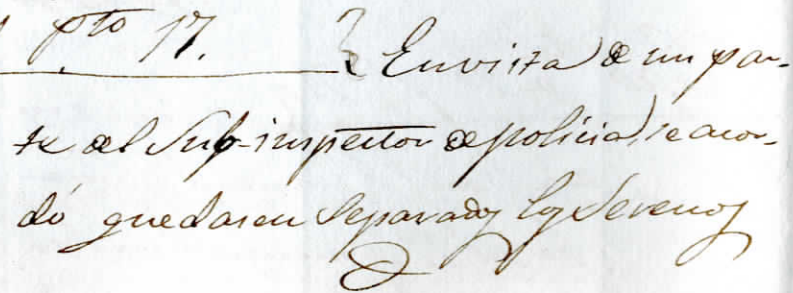 pto 17. } En vista de un par-
te del Sub-inspector de policia, se acor-
dó quedasen Separados los Serenos